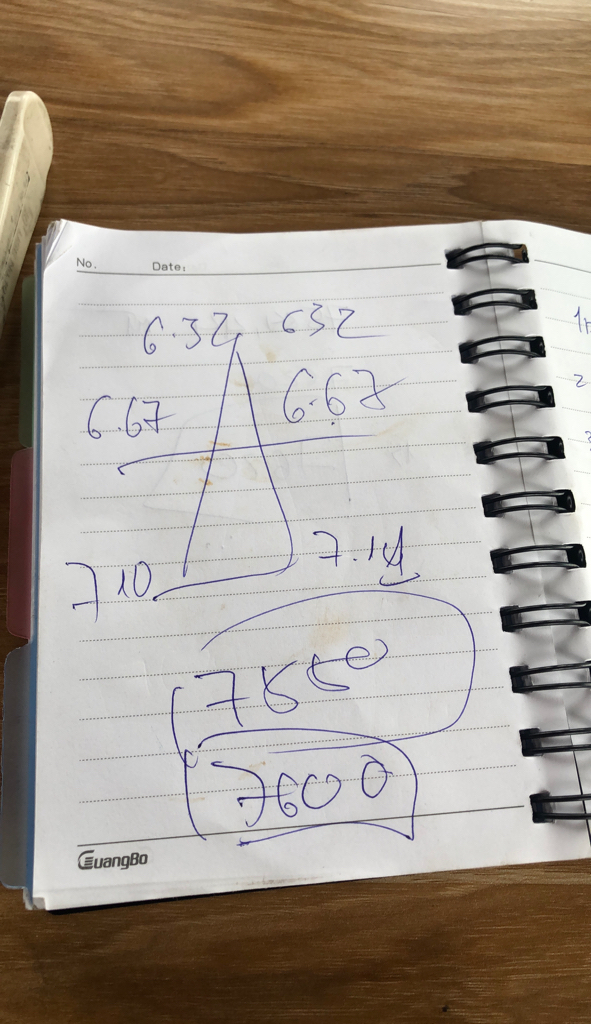 No. Date:
6.32 632
6.67 6.67
710 7.14
7550
7600
GuangBo
2